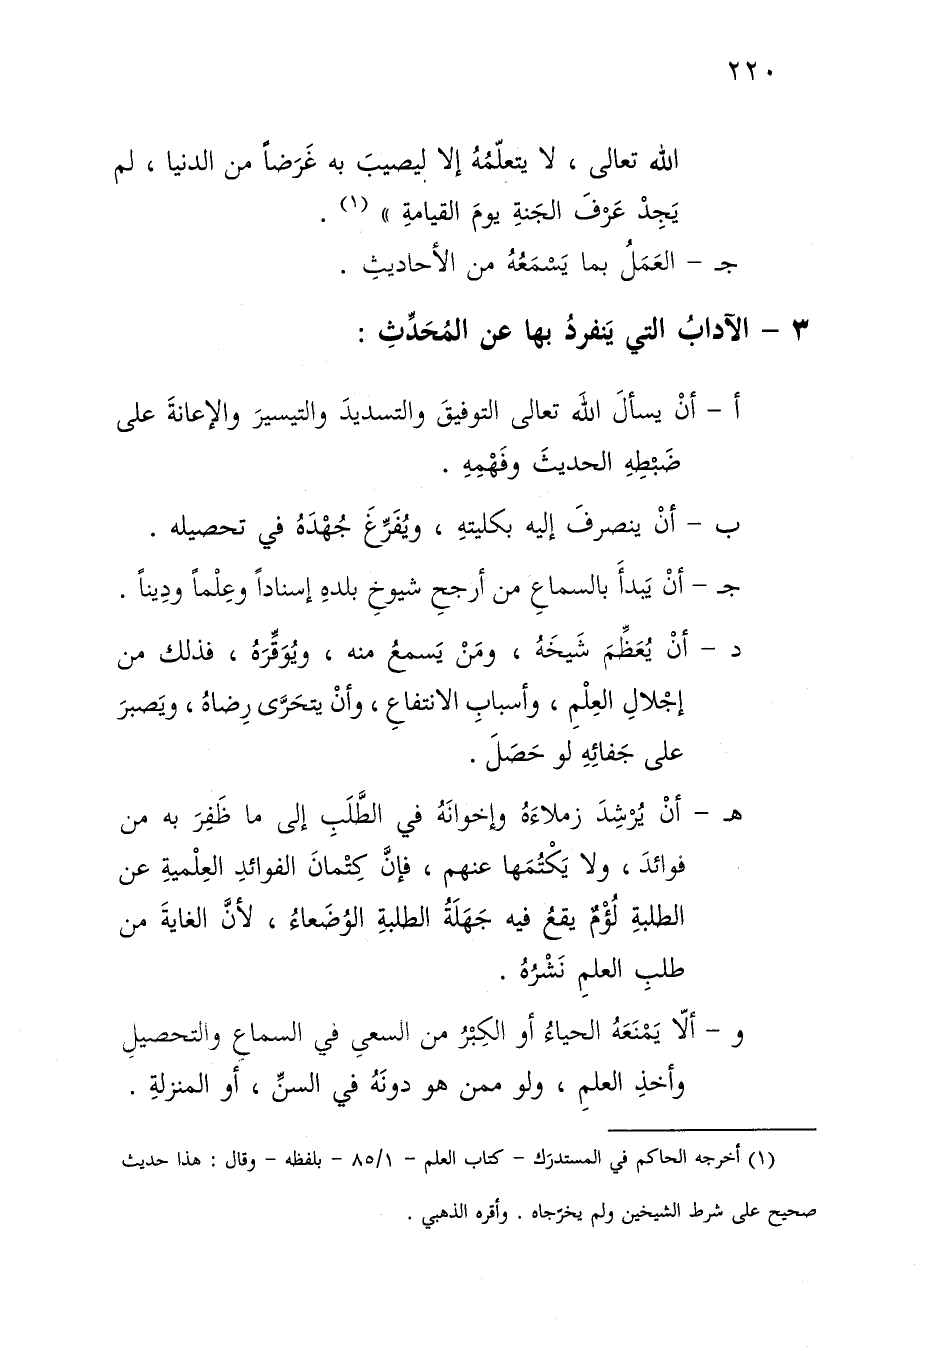 ٢٢٠
الله تعالى ، لا يتعلّمُهُ إلا لِيصيبَ به غَرَضاً من الدنيا ، لم
يَجِدْ عَرْفَ الجَنةِ يومَ القيامةِ » (١) .
جـ – العَمَلُ بما يَسْمَعُهُ من الأحاديثِ .
٣ – الآدابُ التي يَنفردُ بها عن المُحَدِّثِ :
أ – أنْ يسألَ اللهَ تعالى التوفيقَ والتسديدَ والتيسيرَ والإعانةَ على
ضَبْطِهِ الحديثَ وفَهْمِهِ .
ب – أنْ ينصرفَ إليه بكليتهِ ، ويُفَرِّغَ جُهْدَهُ في تحصيله .
جـ – أنْ يَبدأَ بالسماعِ من أرجحِ شيوخِ بلدهِ إسناداً وعِلْماً ودِيناً .
د – أنْ يُعَظِّمَ شَيخَهُ ، ومَنْ يَسمعُ منه ، ويُوَقِّرَهُ ، فذلك من
إجْلالِ العِلْمِ ، وأسبابِ الانتفاعِ ، وأنْ يتحَرَّى رِضاهُ ، ويَصبرَ
على جَفائِهِ لو حَصَلَ .
هـ – أنْ يُرْشِدَ زملاءَهُ وإخوانَهُ في الطَّلَبِ إلى ما ظَفِرَ به من
فوائدَ ، ولا يَكْتُمَها عنهم ، فإنَّ كِتْمانَ الفوائدِ العِلْميةِ عن
الطلبةِ لُؤْمٌ يقعُ فيه جَهَلَةُ الطلبةِ الوُضَعاءُ ، لأنَّ الغايةَ من
طلبِ العلمِ نَشْرُهُ .
و – ألّا يَمْنَعَهُ الحياءُ أو الكِبْرُ من السعيِ في السماعِ والتحصيلِ
وأخذِ العلمِ ، ولو ممن هو دونَهُ في السنِّ ، أو المنزلةِ .
(١) أخرجه الحاكم في المستدرَك – كتاب العلم – ٨٥/١ – بلفظه – وقال : هذا حديث
صحيح على شرط الشيخين ولم يخرّجاه . وأقره الذهبي .